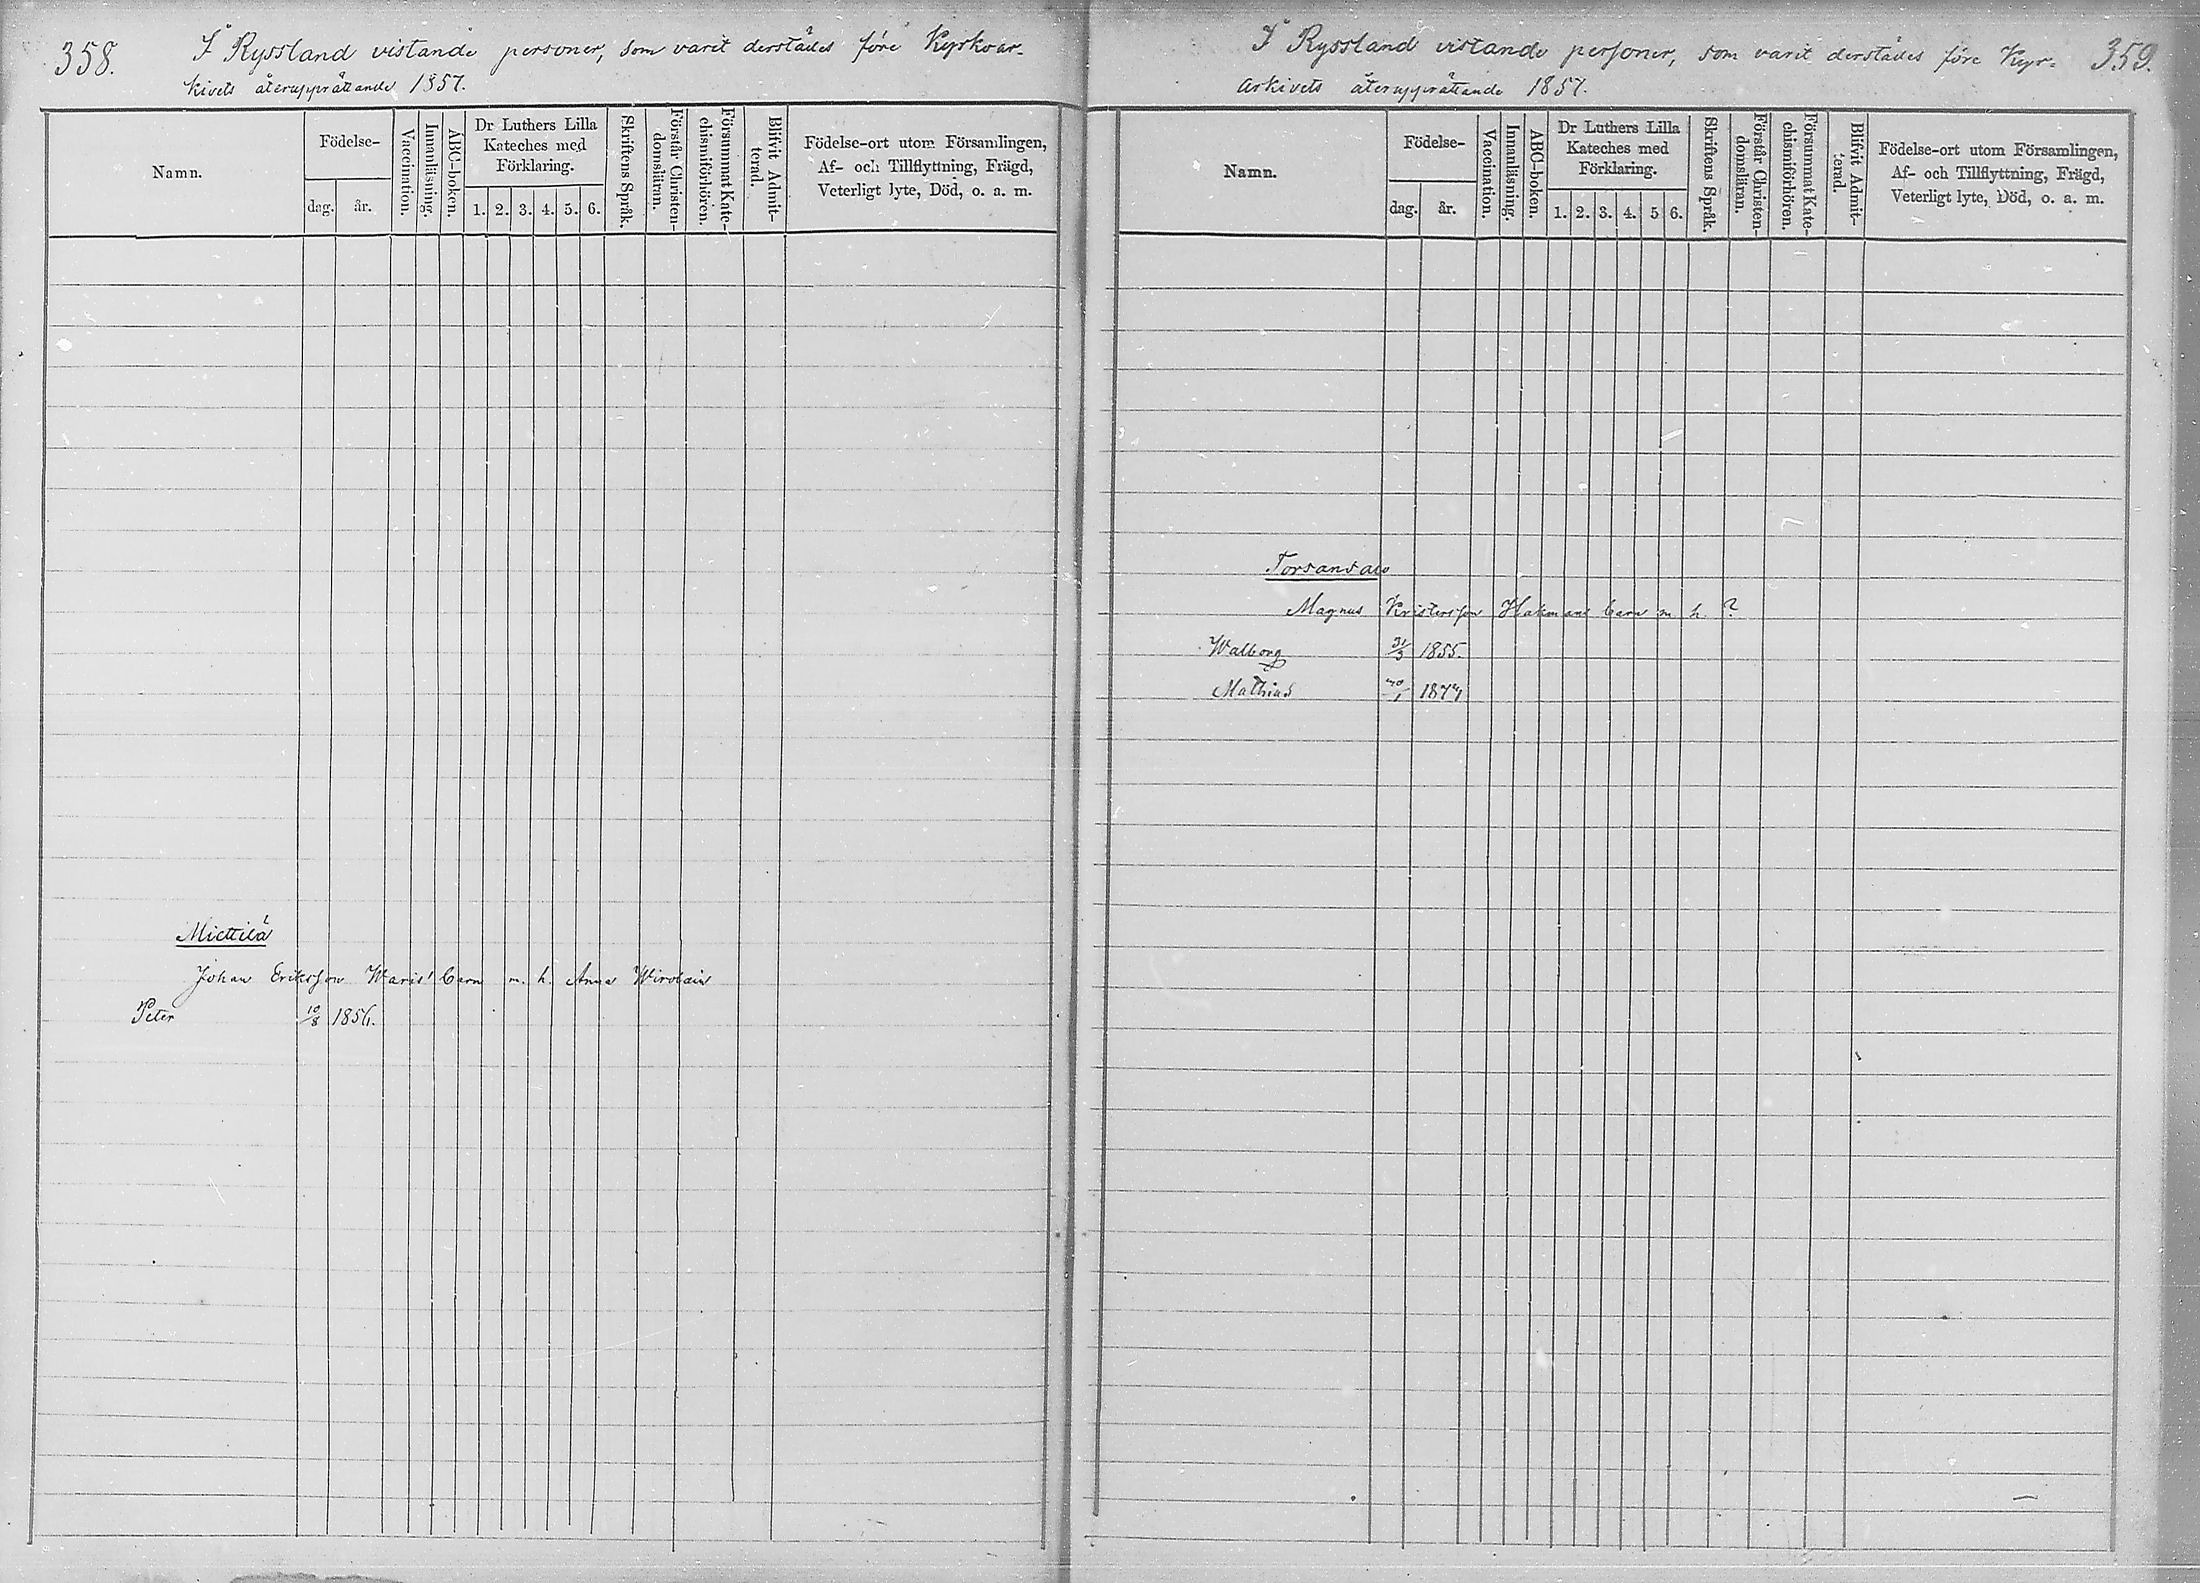 358.
I Ryssland vistande personer, som varit derstädes före Kyrkoar-
kivets återupprättande 1857.
Namn.
Födelse-
dag.
år.
Vaccination.
Innanläsning.
ABC-boken.
Dr Luthers Lilla
Kateches med
Förklaring.
1. 2. 3. 4. 5. 6.
Skriftens Språk.
Förstår Christen-
domsläran.
Försummat Kate-
chismiförhören.
Blifvit Admit-
terad.
Födelse-ort utom Församlingen,
Af- och Tillflyttning, Frägd,
Veterligt lyte, Död, o. a. m.
Miettilä
Johan Eriksson Waris' barn m. h. Anna Wirolain
Peter 10/8 1856.
I Ryssland vistande personer, som varit derstädes före Kyr- 359.
arkivets återupprättande 1857.
Namn.
Födelse-
dag.
år.
Vaccination.
Innanläsning.
ABC-boken.
Dr Luthers Lilla
Kateches med
Förklaring.
1. 2. 3. 4. 5 6.
Skriftens Språk.
Förstår Christen-
domsläran.
Försummat Kate-
chismiförhören.
Blifvit Admit-
terad.
Födelse-ort utom Församlingen,
Af- och Tillflyttning, Frägd,
Veterligt lyte, Död, o. a. m.
Torsansalo
Magnus Kristersson Hakmans barn m h ?
Walborg 31/3 1855.
Mathias